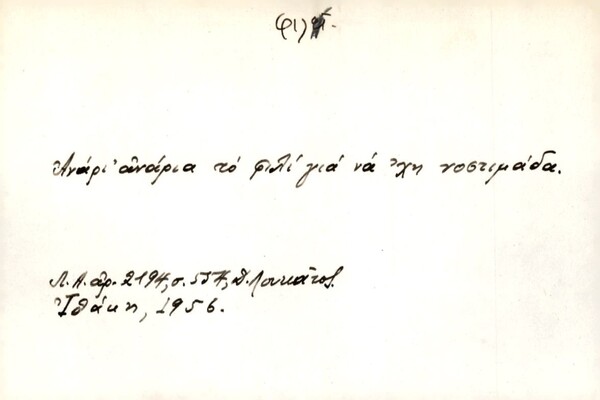 Ἀνάρι' ἀνάρια τό φιλί γιά νά 'χη νοστιμάδα.
Λ.Α. ἀρ. 2194, σ. 554, Δ. Λουκᾶτος
Ἰθάκη, 1956.